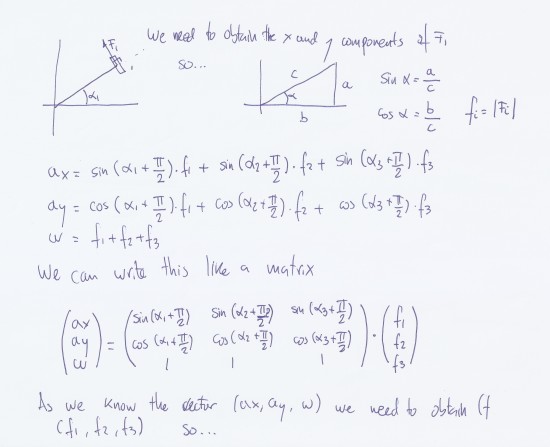 F₁ We need to obtain the x and y components of F₁
α₁ so...
c a α b
sin α = a/c
cos α = b/c fi = |Fi|
ax = sin (α₁ + π/2)·f₁ + sin (α₂ + π/2)·f₂ + sin (α₃ + π/2)·f₃
ay = cos (α₁ + π/2)·f₁ + cos (α₂ + π/2)·f₂ + cos (α₃ + π/2)·f₃
w = f₁ + f₂ + f₃
We can write this like a matrix
(ax) (sin (α₁ + π/2) sin (α₂ + π/2) sin (α₃ + π/2)) (f₁)
(ay) = (cos (α₁ + π/2) cos (α₂ + π/2) cos (α₃ + π/2)) · (f₂)
(w) (1 1 1) (f₃)
As we know the vector (ax, ay, w) we need to obtain (f
(f₁, f₂, f₃) so...